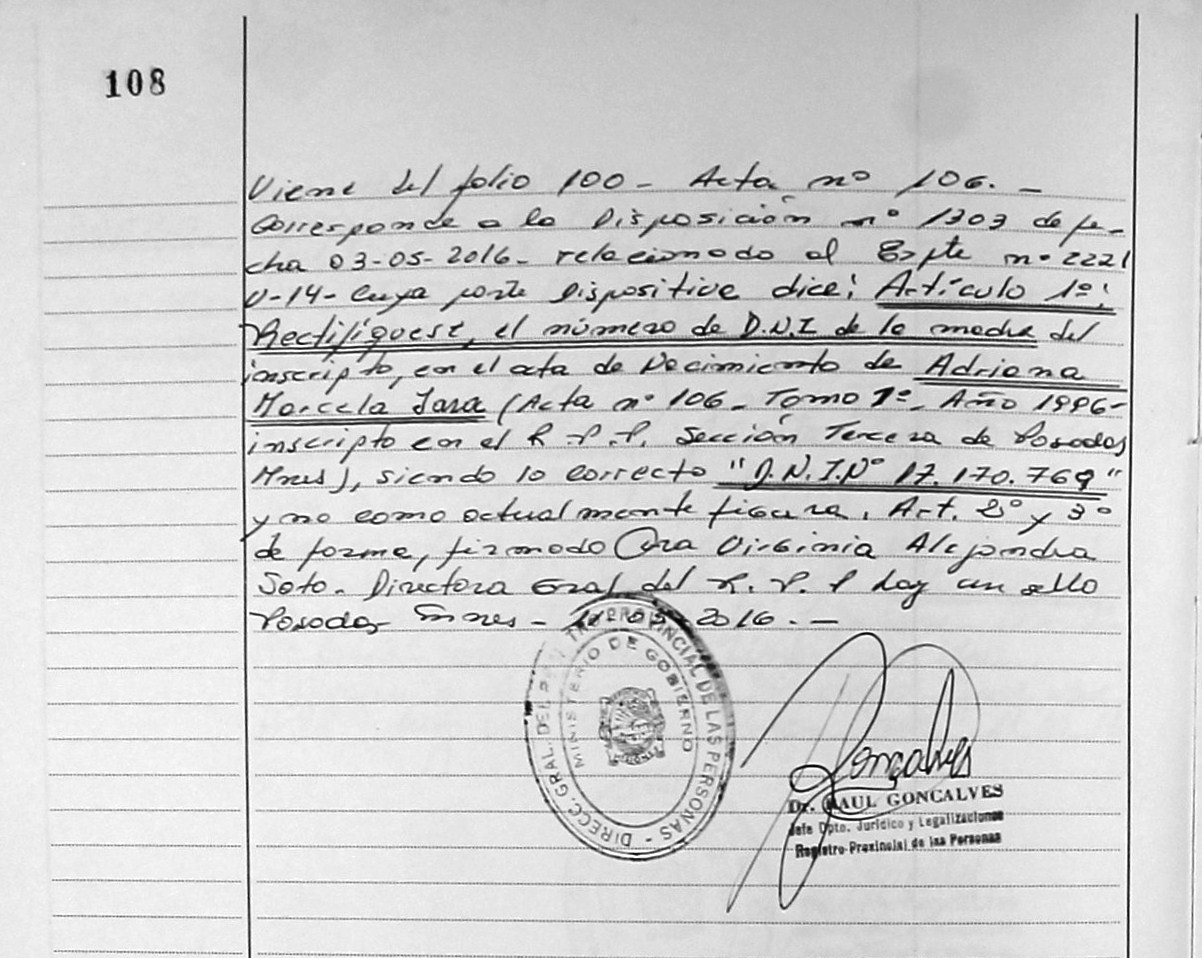 108
Viene del folio 100 - Acta nº 106. -
Corresponde a la Disposición nº 1303 de fe-
cha 03-05-2016 - relacionado al Expte nº 2221
U-14 - Cuya parte Dispositiva dice: Artículo 1º:
Rectifíquese, el número de D.N.I de la madre del
inscripto, en el acta de Nacimiento de Adriana
Marcela Jara (Acta nº 106 - Tomo 1º - Año 1996 -
inscripto en el R.P.P. Sección Tercera de Posadas
Mnes), siendo lo correcto "D.N.I.Nº 17.170.769"
y no como actualmente figura. Art. 2º y 3º
de forma, firmado Virginia Alejandra
Soto. Directora Gral del R.P.P hay un sello
Posadas Mnes - 2016. -
DIRECC. GRAL. DEL PROVINCIAL DE LAS PERSONAS -
MINISTERIO DE GOBIERNO
MISIONES
Goncalves
Dr. RAUL GONCALVES
Jefe Dpto. Jurídico y Legalizaciones
Registro Provincial de las Personas